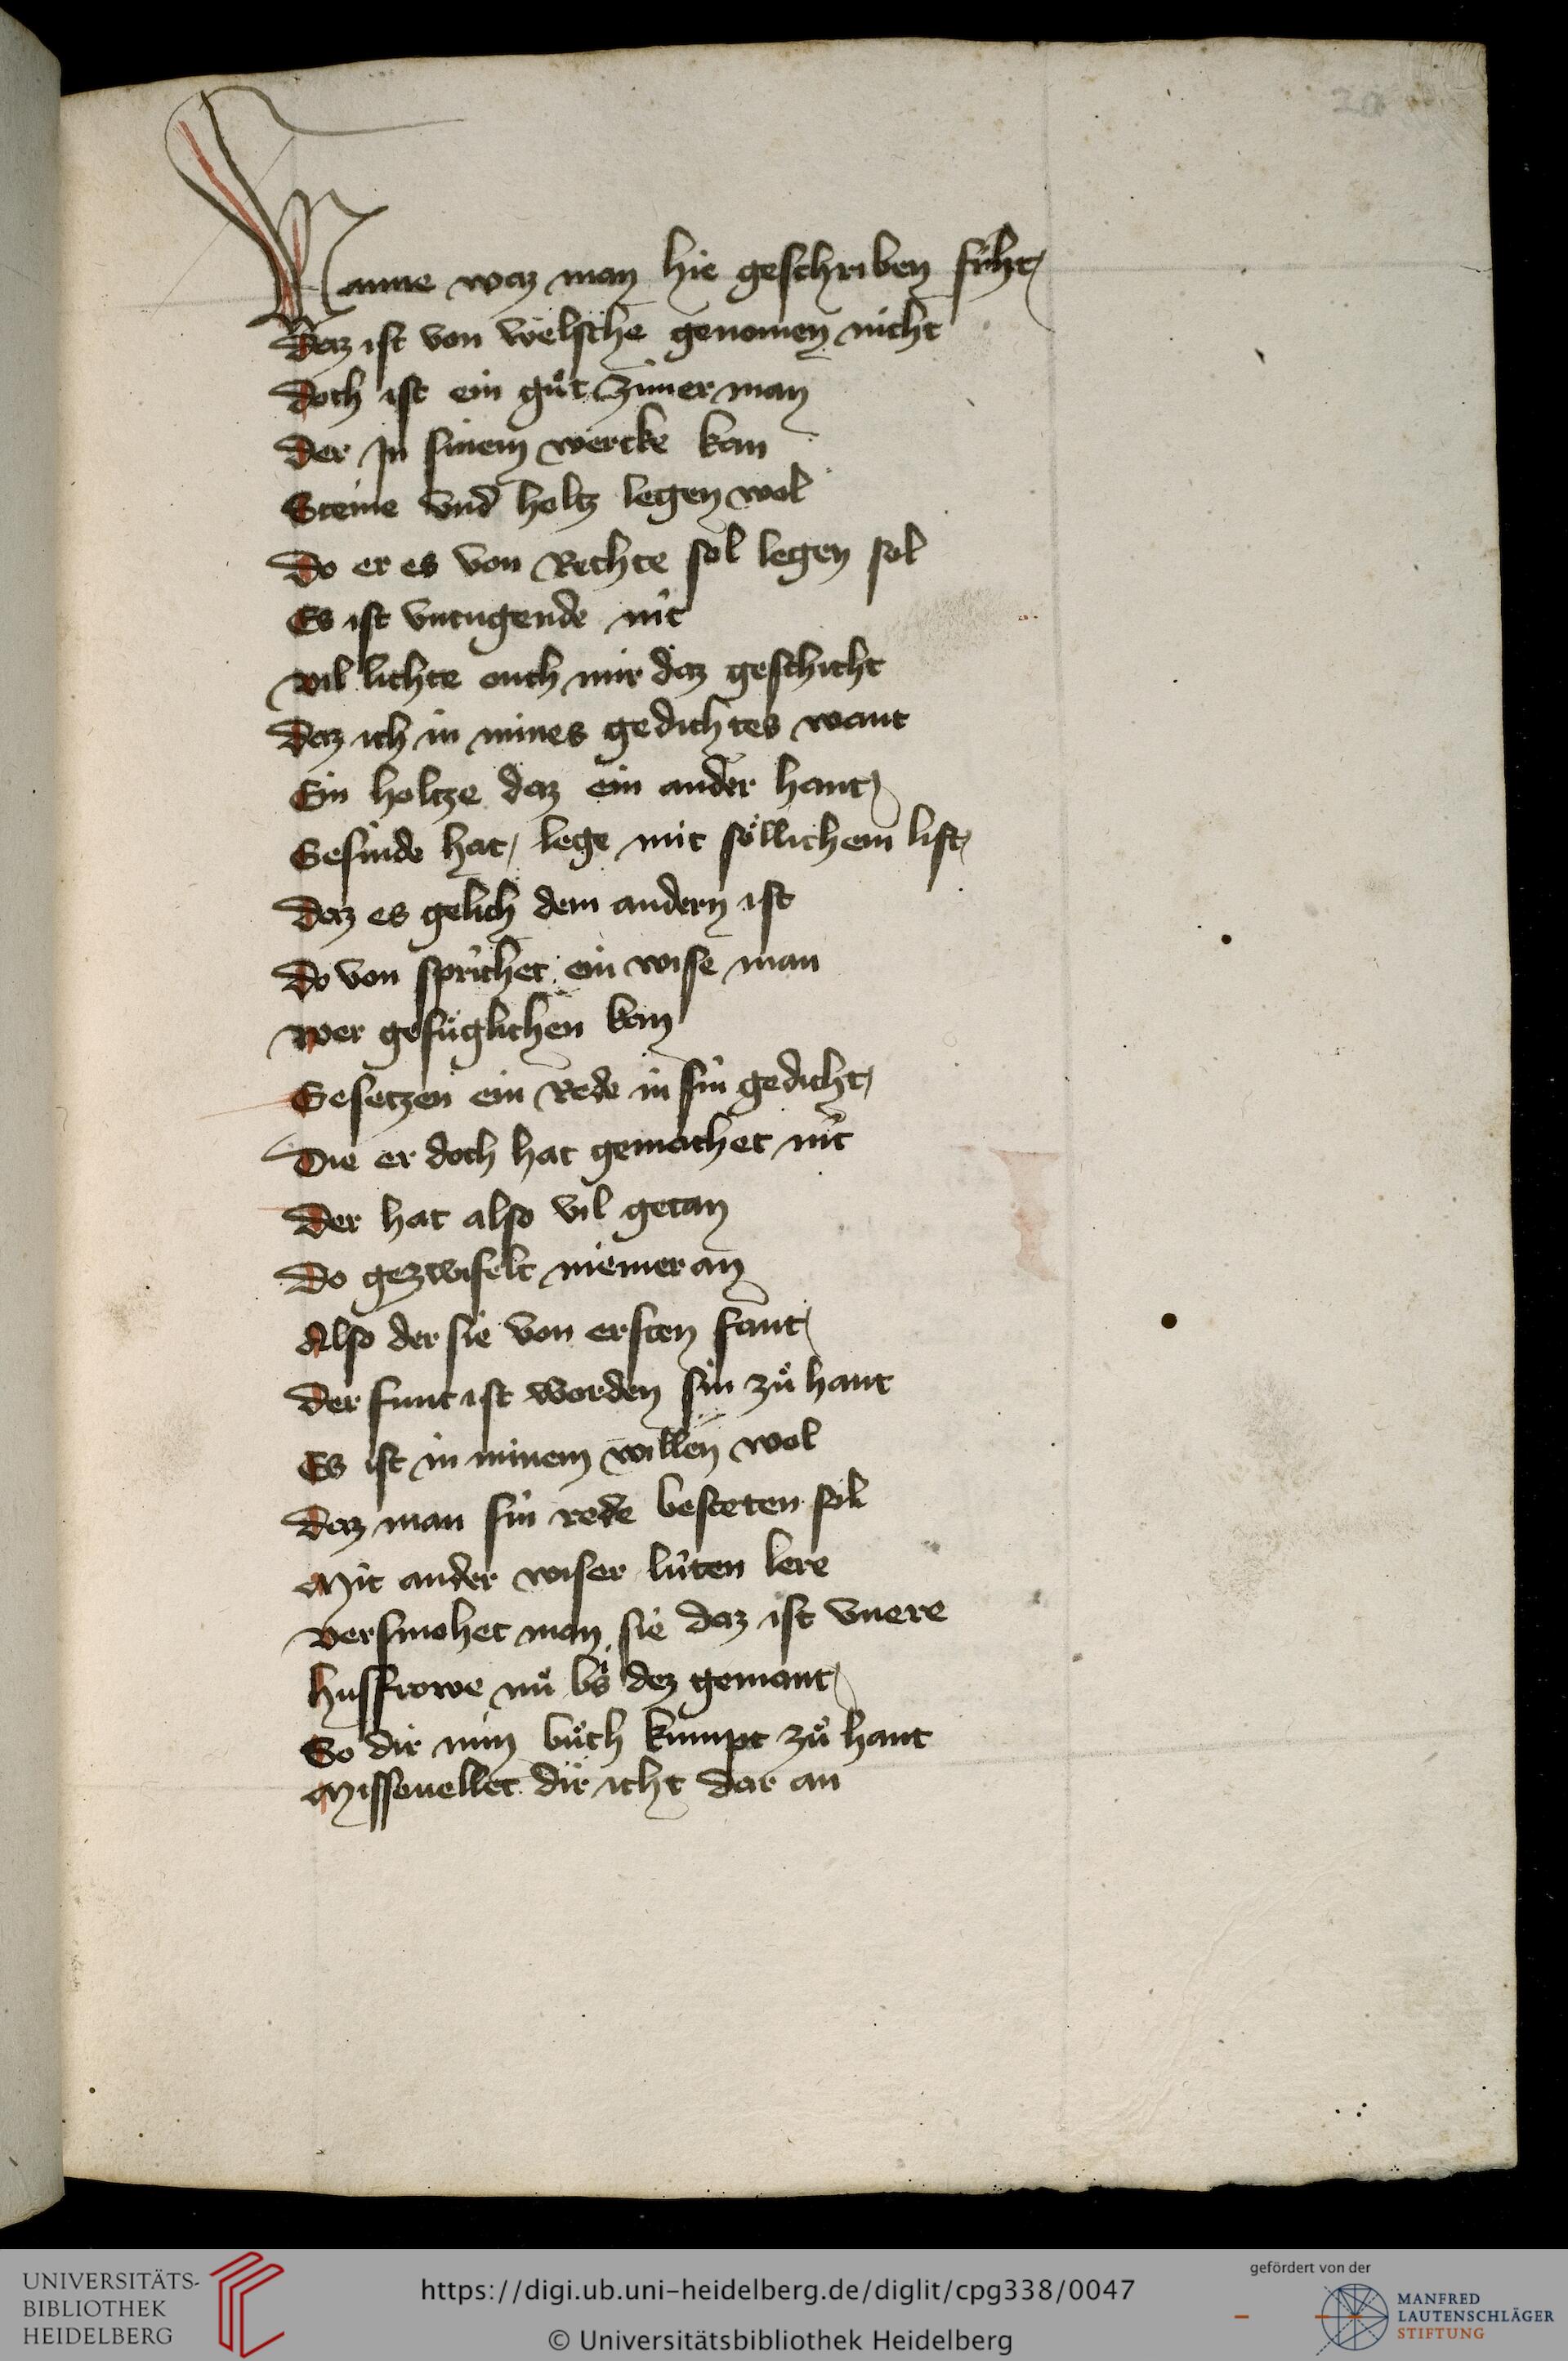 20
Wanne waz man hie geschriben siht
Daz ist von welsche genomen nicht
doch ist ein guͦt zimer man
der Jn sinem wercke kan
Steine vnd holtz legen wol
do er es von Rechte sol legen sol
Es ist vntugende nit
vil lichte ouch mir daz geschicht
daz ich in mines gedichtes want
Ein holtze daz ein ander hant
Gefinde hat lege mit söllichem list
daz es gelich dem andern ist
do von sprichet ein wise man
wer gefuͤglichen kan
Gesetzen ein Rede in sin gedicht
Die er doch hat gemachet nit
der hat also vil getan
do gezwifelt niemer an
Also der sie von ersten fant
der funt ist worden sin zuͦ hant
Es ist in minem willen wol
daz man sin rede besteten sol
Mit ander wiser lúten lere
versmohet man sie daz ist vnere
husfrowe nuͦ bis dez gemant
So dir min buͦch kumpt zuͦ hant
Missevellet dir icht dar an
UNIVERSITÄTS-
BIBLIOTHEK
HEIDELBERG
https://digi.ub.uni-heidelberg.de/diglit/cpg338/0047
© Universitätsbibliothek Heidelberg
gefördert von der
MANFRED
LAUTENSCHLÄGER
STIFTUNG